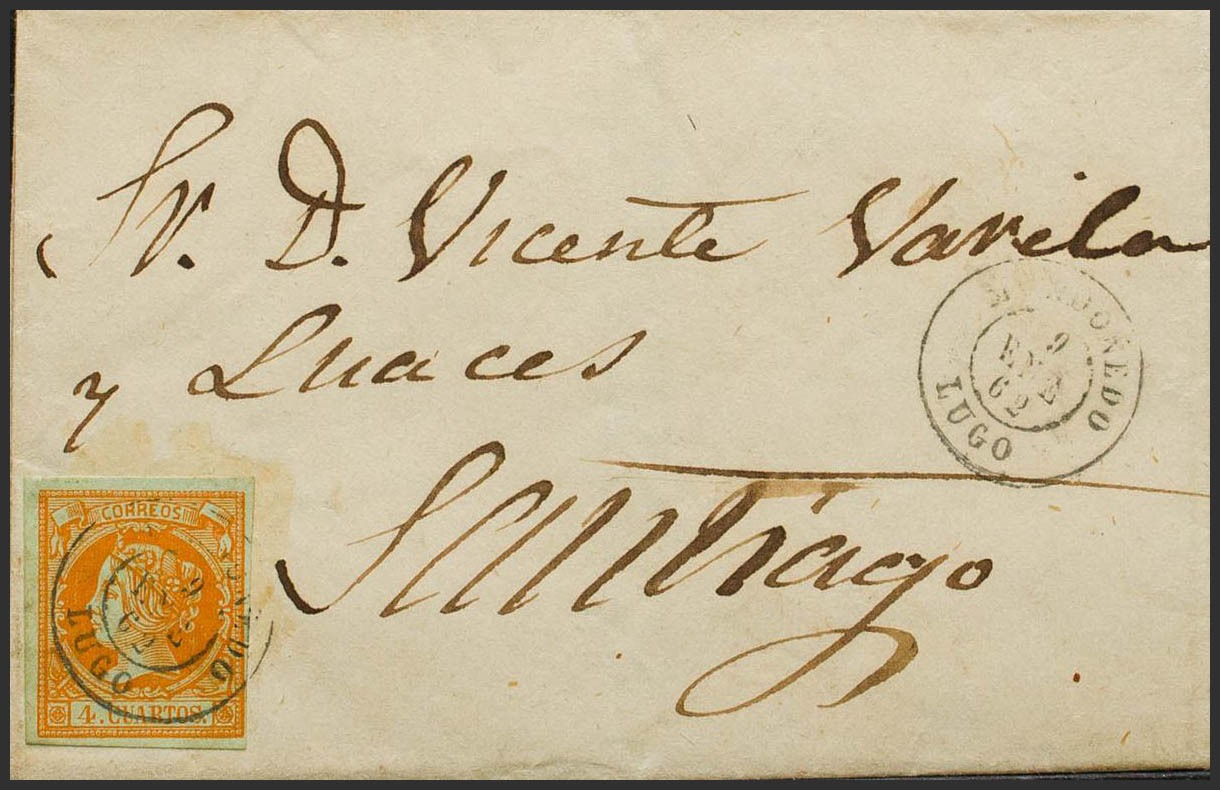 Sr. D. Vicente Varela
y Luaces
Santiago
MONDOÑEDO
9
ENE
62
LUGO
CORREOS
4. CUARTOS.
LUGO